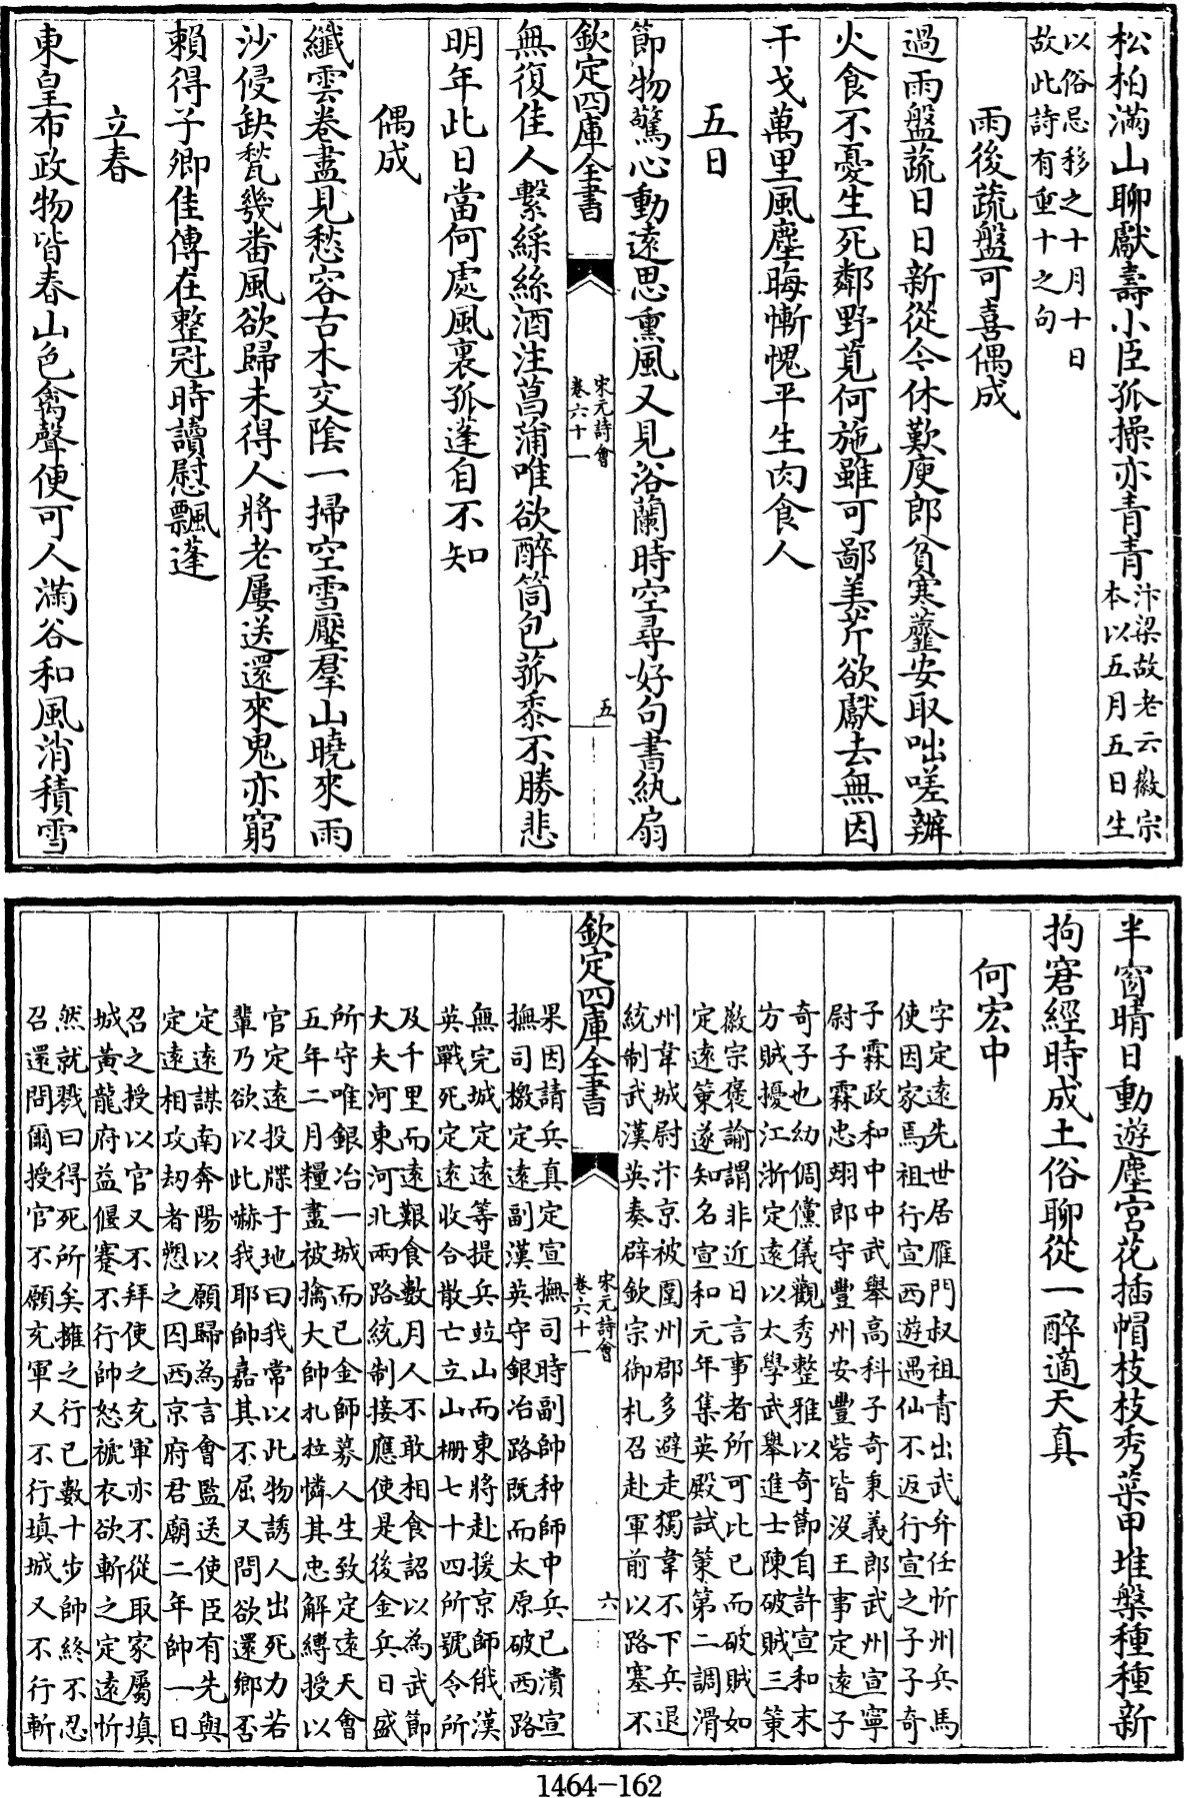 松柏滿山聊獻壽小臣孤操亦青青汴梁故老云徽宗
本以五月五日生
以俗忌移之十月十日
故此詩有重十之句
雨後蔬盤可喜偶成
過雨盤蔬日日新從今休歎庾郎貧寒虀安取咄嗟辦
火食不憂生死鄰野莧何施雖可鄙美芹欲獻去無因
干戈萬里風塵晦慚愧平生肉食人
五日
節物驚心動遠思熏風又見浴蘭時空尋好句書紈扇
欽定四庫全書
宋元詩會
卷六十一
五
無復佳人繫綵絲酒注菖蒲唯欲醉筒包菰黍不勝悲
明年此日當何處風裏孤蓬自不知
偶成
纖雲卷盡見愁容古木交陰一掃空雪壓羣山曉來雨
沙侵缺甃幾番風欲歸未得人將老屢送還來鬼亦窮
賴得子卿佳傳在整冠時讀慰飄蓬
立春
東皇布政物皆春山色禽聲便可人滿谷和風消積雪
半窗晴日動遊塵宮花插帽枝枝秀菜甲堆槃種種新
拘窘經時成土俗聊從一醉適天真
何宏中
字定遠先世居雁門叔祖青出武弁任忻州兵馬
使因家馬祖行宣西遊遇仙不返行宣之子子奇
子霖政和中中武舉高科子奇秉義郎武州宣寧
尉子霖忠翊郎守豐州安豐砦皆沒王事定遠子
奇子也幼倜儻儀觀秀整雅以奇節自許宣和末
方賊擾江浙定遠以太學武舉進士陳破賊三策
徽宗褒諭謂非近日言事者所可比已而破賊如
定遠策遂知名宣和元年集英殿試策第二調滑
州韋城尉汴京被圍州郡多避走獨韋不下兵退
統制武漢英奏辟欽宗御札召赴軍前以路塞不
欽定四庫全書
宋元詩會
卷六十一
六
果因請兵真定宣撫司時副帥种師中兵已潰宣
撫司檄定遠副漢英守銀冶路既而太原破西路
無完城定遠等提兵竝山而東將赴援京師俄漢
英戰死定遠收合散亡立山柵七十四所號令所
及千里而遠艱食數月人不敢相食詔以為武節
大夫河東河北兩路統制接應使是後金兵日盛
所守唯銀冶一城而已金師募人生致定遠天會
五年二月糧盡被擒大帥扎拉憐其忠解縛授以
官定遠投牒于地曰我常以此物誘人出死力若
輩乃欲以此嚇我耶帥嘉其不屈又問欲還鄉否
定遠謀南奔陽以願歸為言會監送使臣有先與
定遠相攻刼者愬之囚西京府君廟二年帥一日
召之授以官又不拜使之充軍亦不從取家屬填
城黃龍府益偃蹇不行帥怒褫衣欲斬之定遠忻
然就戮曰得死所矣擁之行已數十步帥終不忍
召還問爾授官不願充軍又不行填城又不行斬
1464-162